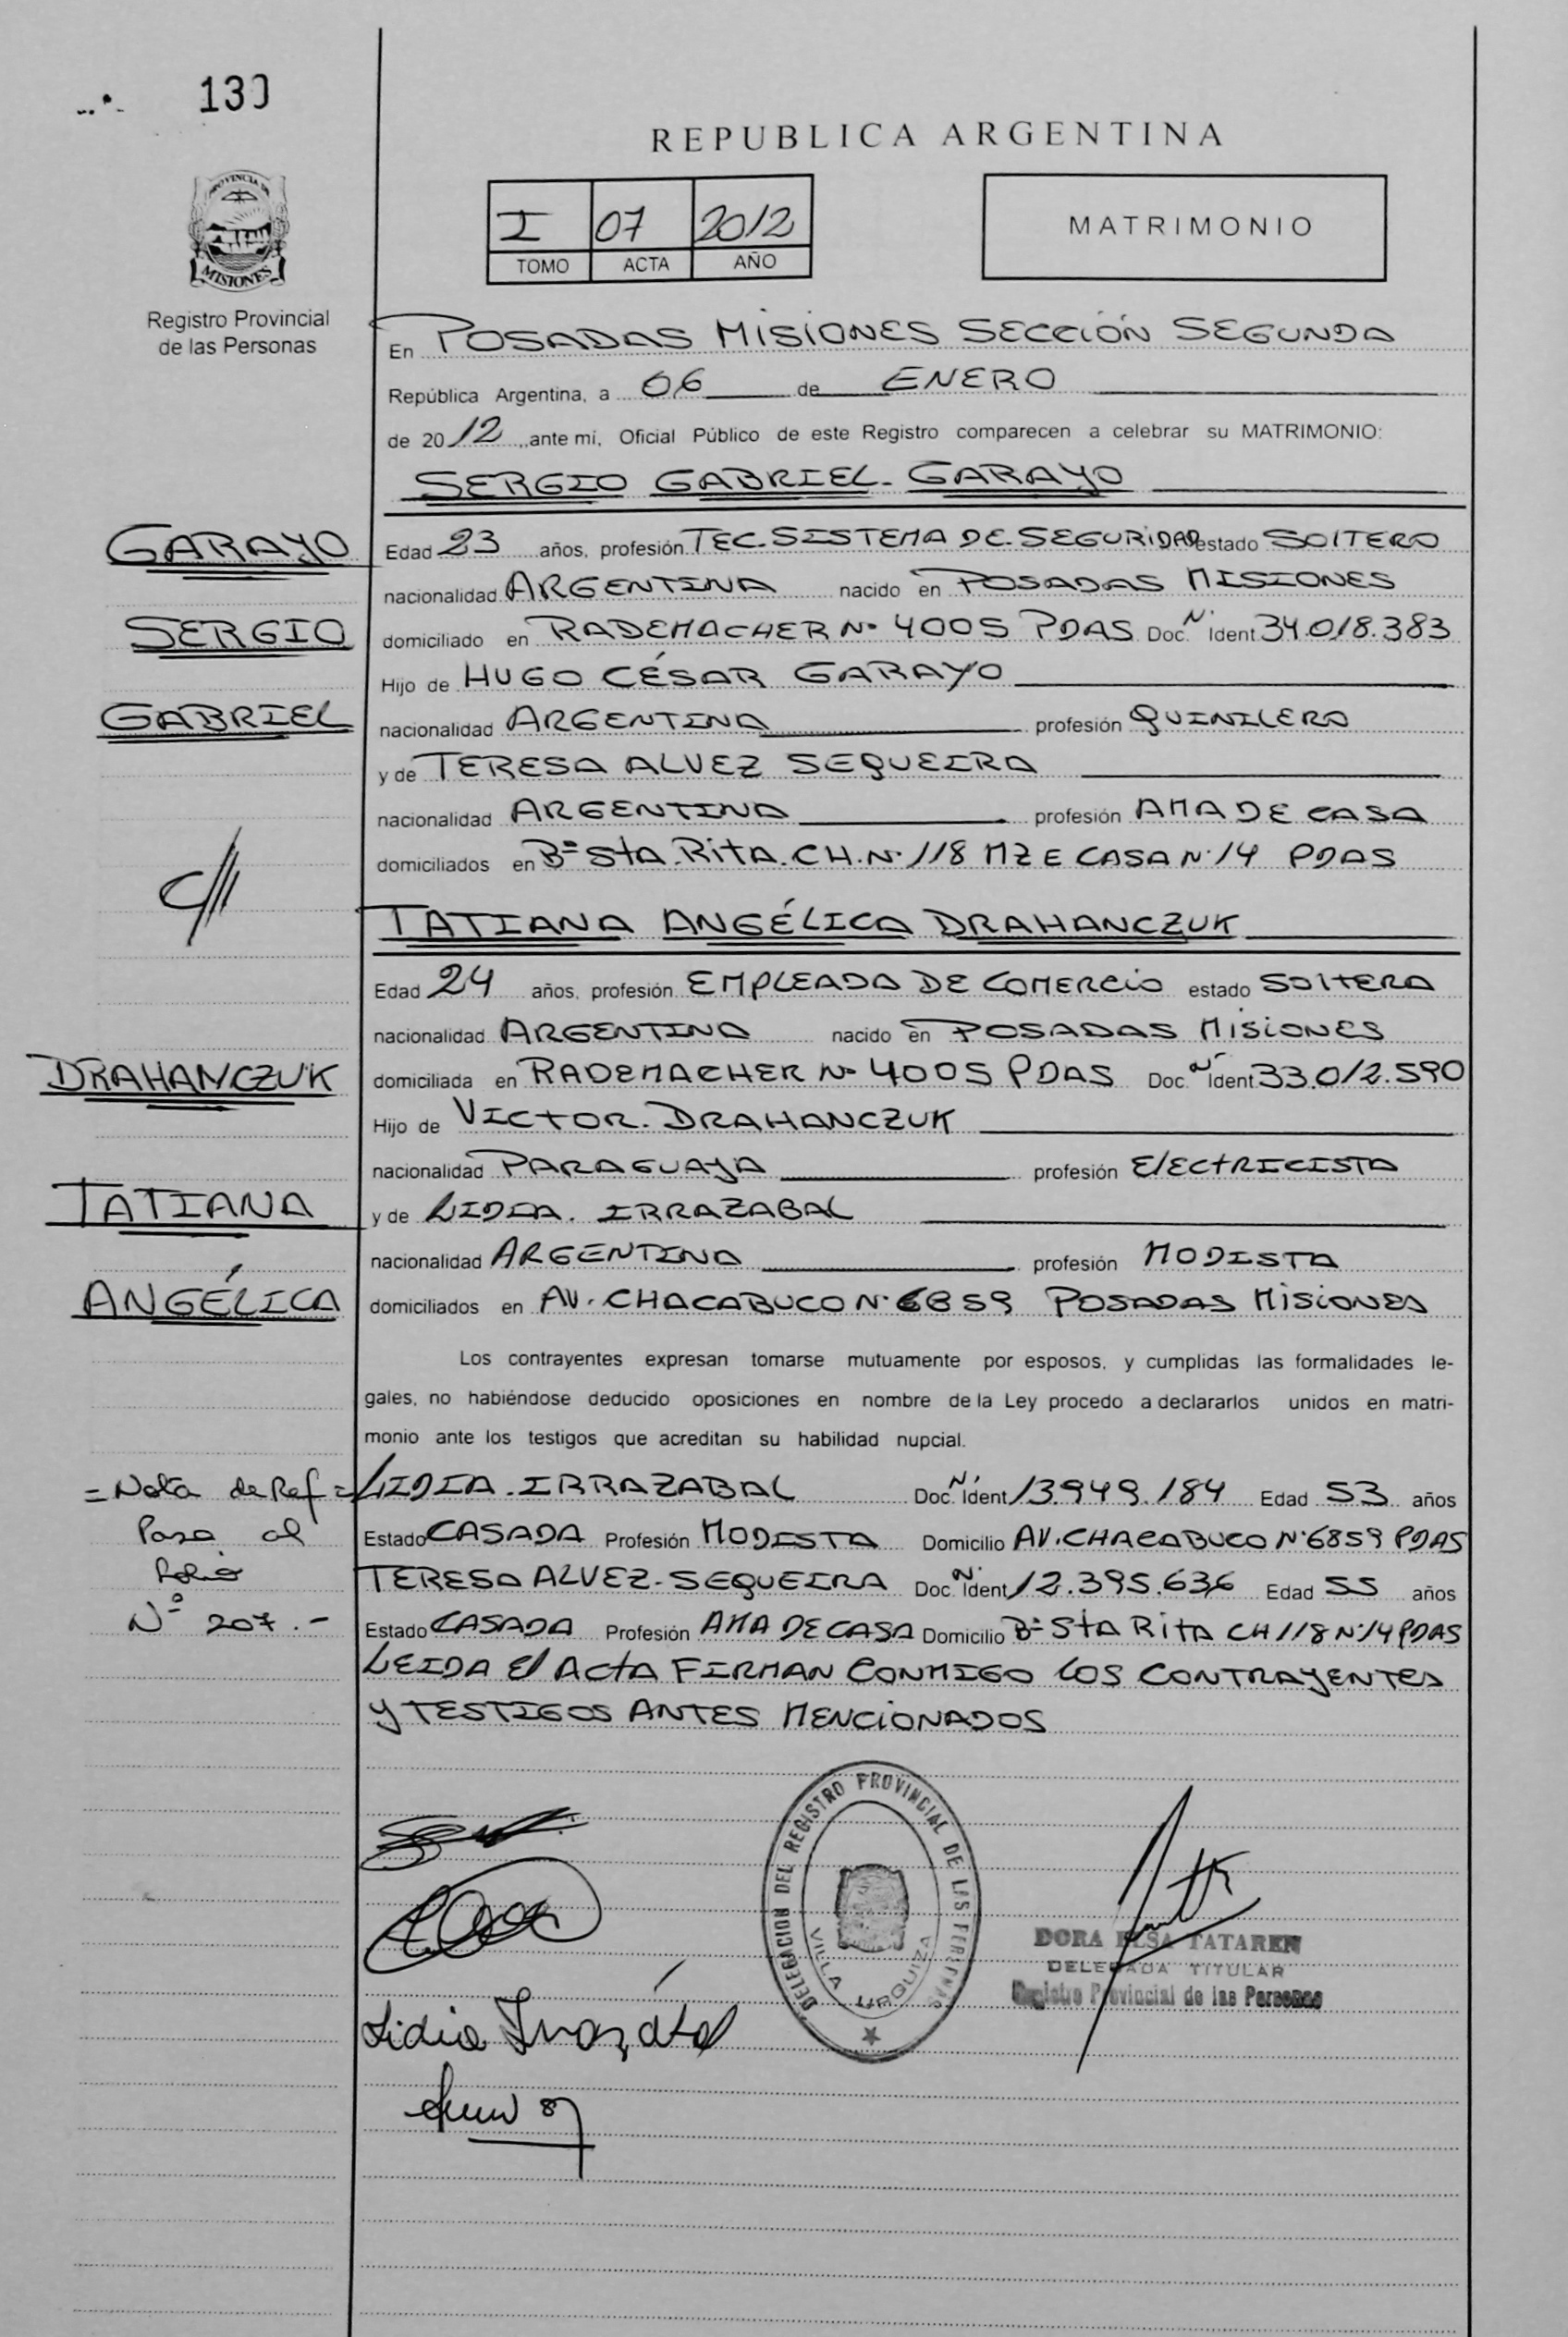 130
REPUBLICA ARGENTINA
PROVINCIA DE
MISIONES
Registro Provincial
de las Personas
I 07 2012
TOMO ACTA AÑO
MATRIMONIO
En POSADAS MISIONES SECCIÓN SEGUNDA
República Argentina, a 06 de ENERO
de 2012, ante mí, Oficial Público de este Registro comparecen a celebrar su MATRIMONIO:
SERGIO GABRIEL- GARAYO
GARAYO
Edad 23 años, profesión TEC. SISTEMA DE SEGURIDAD estado SOlTERO
nacionalidad ARGENTINA nacido en POSADAS MISIONES
SERGIO
domiciliado en RADEMACHER Nº 4005 PDAS Doc. Nº Ident 34.018.383
Hijo de HUGO CÉSAR GARAYO
GABRIEL
nacionalidad ARGENTINA profesión QUINILERO
y de TERESA ALVEZ SEQUEIRA
nacionalidad ARGENTINA profesión AMA DE CASA
domiciliados en Bº StA. RitA. CH. Nº 118 MZ E CASA Nº 14 PDAS
TATIANA ANGÉLICA DRAHANCZUK
Edad 24 años, profesión EMPLEADA DE COMERCIO estado SOltERA
nacionalidad ARGENTINA nacido en POSADAS MISIONES
DRAHANCZUK
domiciliada en RADEMACHER Nº 4005 PDAS Doc. Nº Ident 33.012.590
Hijo de VICTOR. DRAHANCZUK
nacionalidad PARAGUAYA profesión ElECtRICISTA
TATIANA
y de LIDIA. IRRAZABAL
nacionalidad ARGENTINA profesión MODISTA
ANGÉLICA
domiciliados en AV. CHACABUCO Nº 6859 POSADAS MISIONES
Los contrayentes expresan tomarse mutuamente por esposos, y cumplidas las formalidades le-
gales, no habiéndose deducido oposiciones en nombre de la Ley procedo a declararlos unidos en matri-
monio ante los testigos que acreditan su habilidad nupcial.
= Nota de Ref =
Pasa al
folio
Nº 207.-
LIDIA. IRRAZABAL Doc. Nº Ident 13.949.184 Edad 53 años
Estado CASADA Profesión MODISTA Domicilio AV. CHACABUCO Nº 6859 PDAS
TERESA ALVEZ- SEQUEIRA Doc. Nº Ident 12.395.636 Edad 55 años
Estado CASADA Profesión AMA DE CASA Domicilio Bº StA RitA CH 118 Nº 14 PDAS
LEIDA El ActA FIRMAN CONMIGO lOS CONTRAYENTES
Y TESTIGOS ANTES MENCIONADOS
DELEGACION DEL REGISTRO PROVINCIAL DE LAS PERSONAS
VILLA URQUIZA
DORA ELSA TATAREN
DELEGADA TITULAR
Registro Provincial de las Personas
Lidia Irrazábal